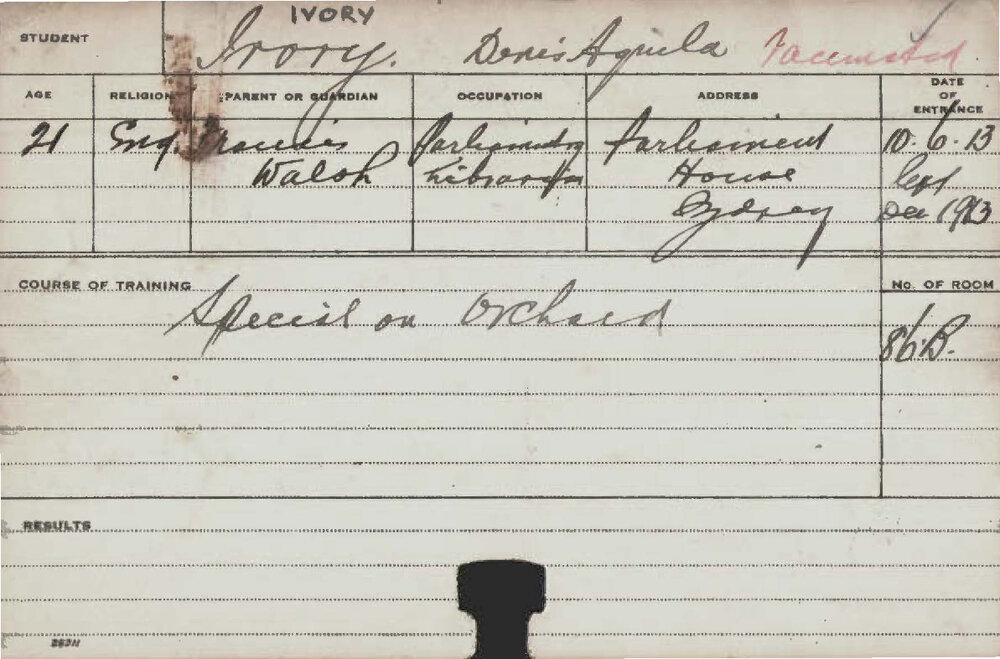 IVORY
STUDENT Ivory. Denis Aquila
AGE RELIGION PARENT OR GUARDIAN OCCUPATION ADDRESS DATE OF ENTRANCE
21 Eng. Francis Parliamentary Parliament 10.6.13
Walsh Librarian House left
Sydney Dec 1913
COURSE OF TRAINING No. OF ROOM
Special on Orchard
86.B.
RESULTS